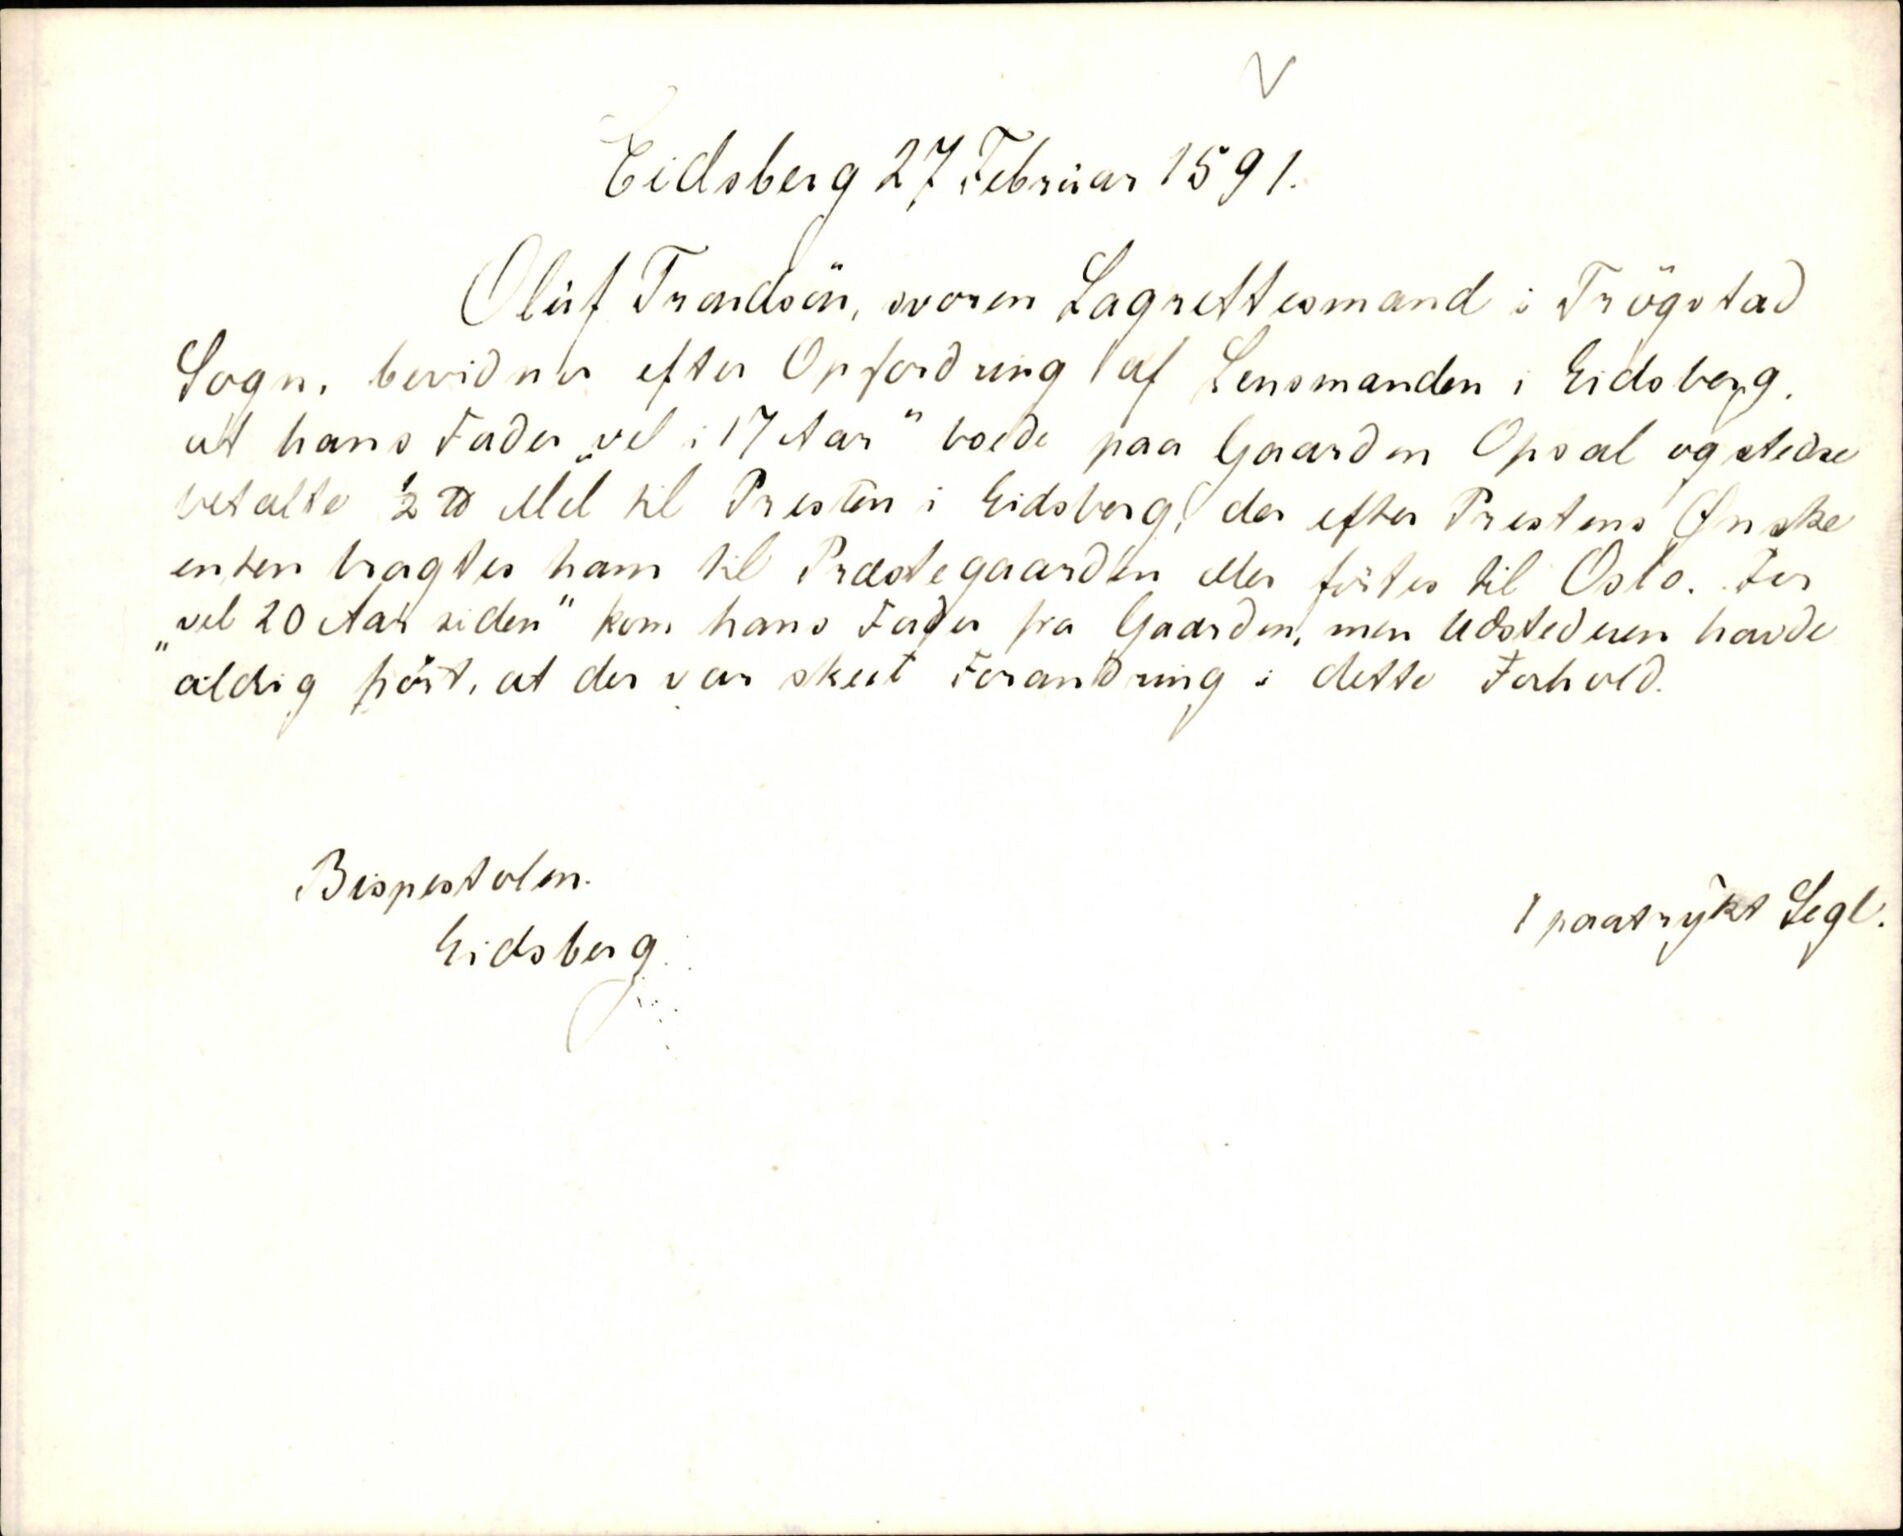 V
Eidsberg 27 Februar 1591.
Oluf Trondsön, svoren Lagrettesmand i Trögstad
Sogn, bevidner efter Opfordring af Lensmanden i Eidsberg,
at hans Fader „vel i 17 Aar" boede paa Gaarden Opsal og stedse
betalte ½ ℔ Mel til Presten i Eidsberg, der efter Prestens Ønske
enten bragtes ham til Præstegaarden eller förtes til Oslo. For
„vel 20 Aar siden" kom hans Fader fra Gaarden, men Udstederen havde
aldrig hört, at der var skeet Forandring i dette Forhold.
Bispestolen.
Eidsberg.
1 paatrykt Segl.